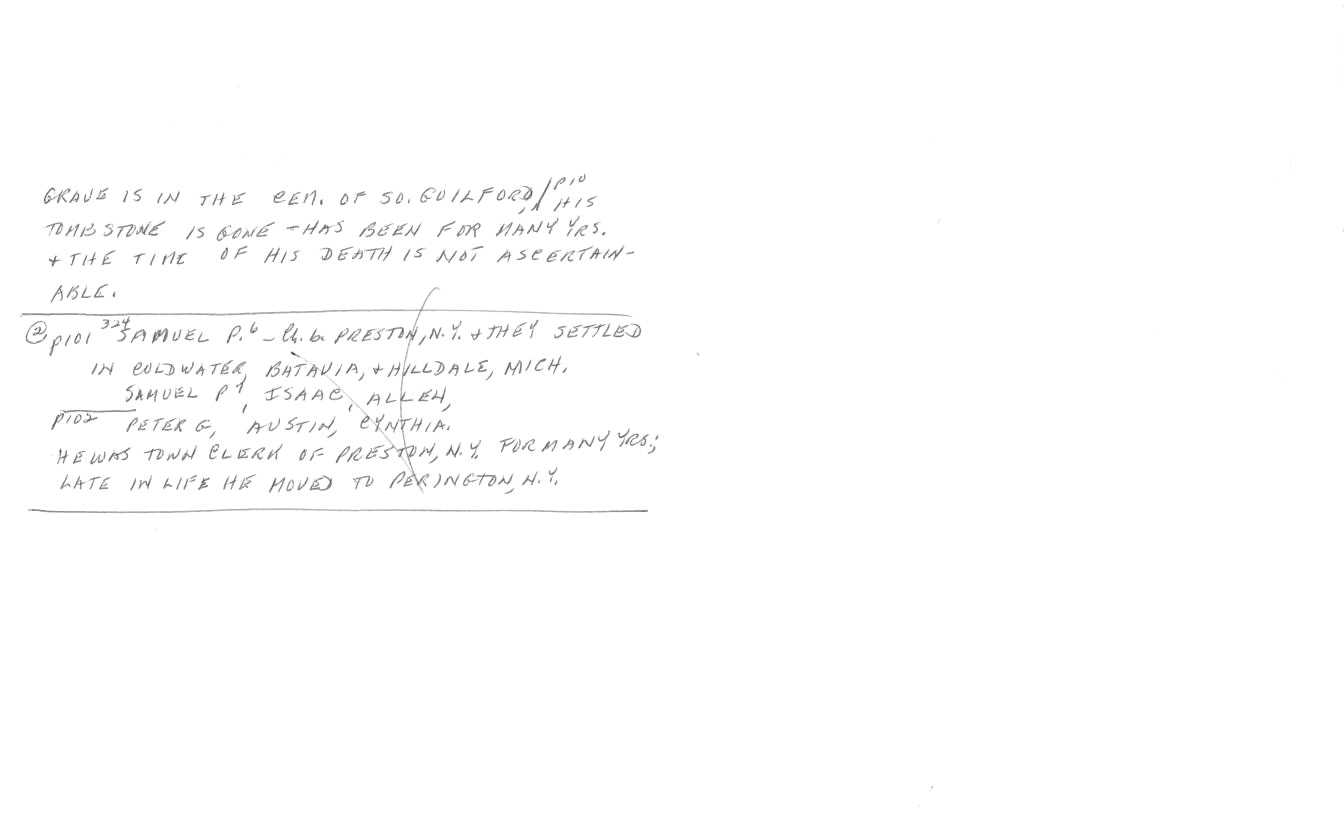 GRAVE IS IN THE CEM. OF SO. GUILFORD, / P10
HIS
TOMBSTONE IS GONE - HAS BEEN FOR MANY YRS.
+ THE TIME OF HIS DEATH IS NOT ASCERTAIN-
ABLE.
② p101 324 SAMUEL P.6 - Ch. b. PRESTON, N.Y. + THEY SETTLED
IN COLDWATER, BATAVIA, + HILLDALE, MICH.
SAMUEL P7, ISAAC, ALLEN,
p102 PETER G, AUSTIN, CYNTHIA.
HE WAS TOWN CLERK OF PRESTON, N.Y. FOR MANY YRS;
LATE IN LIFE HE MOVED TO PERINGTON, N.Y.